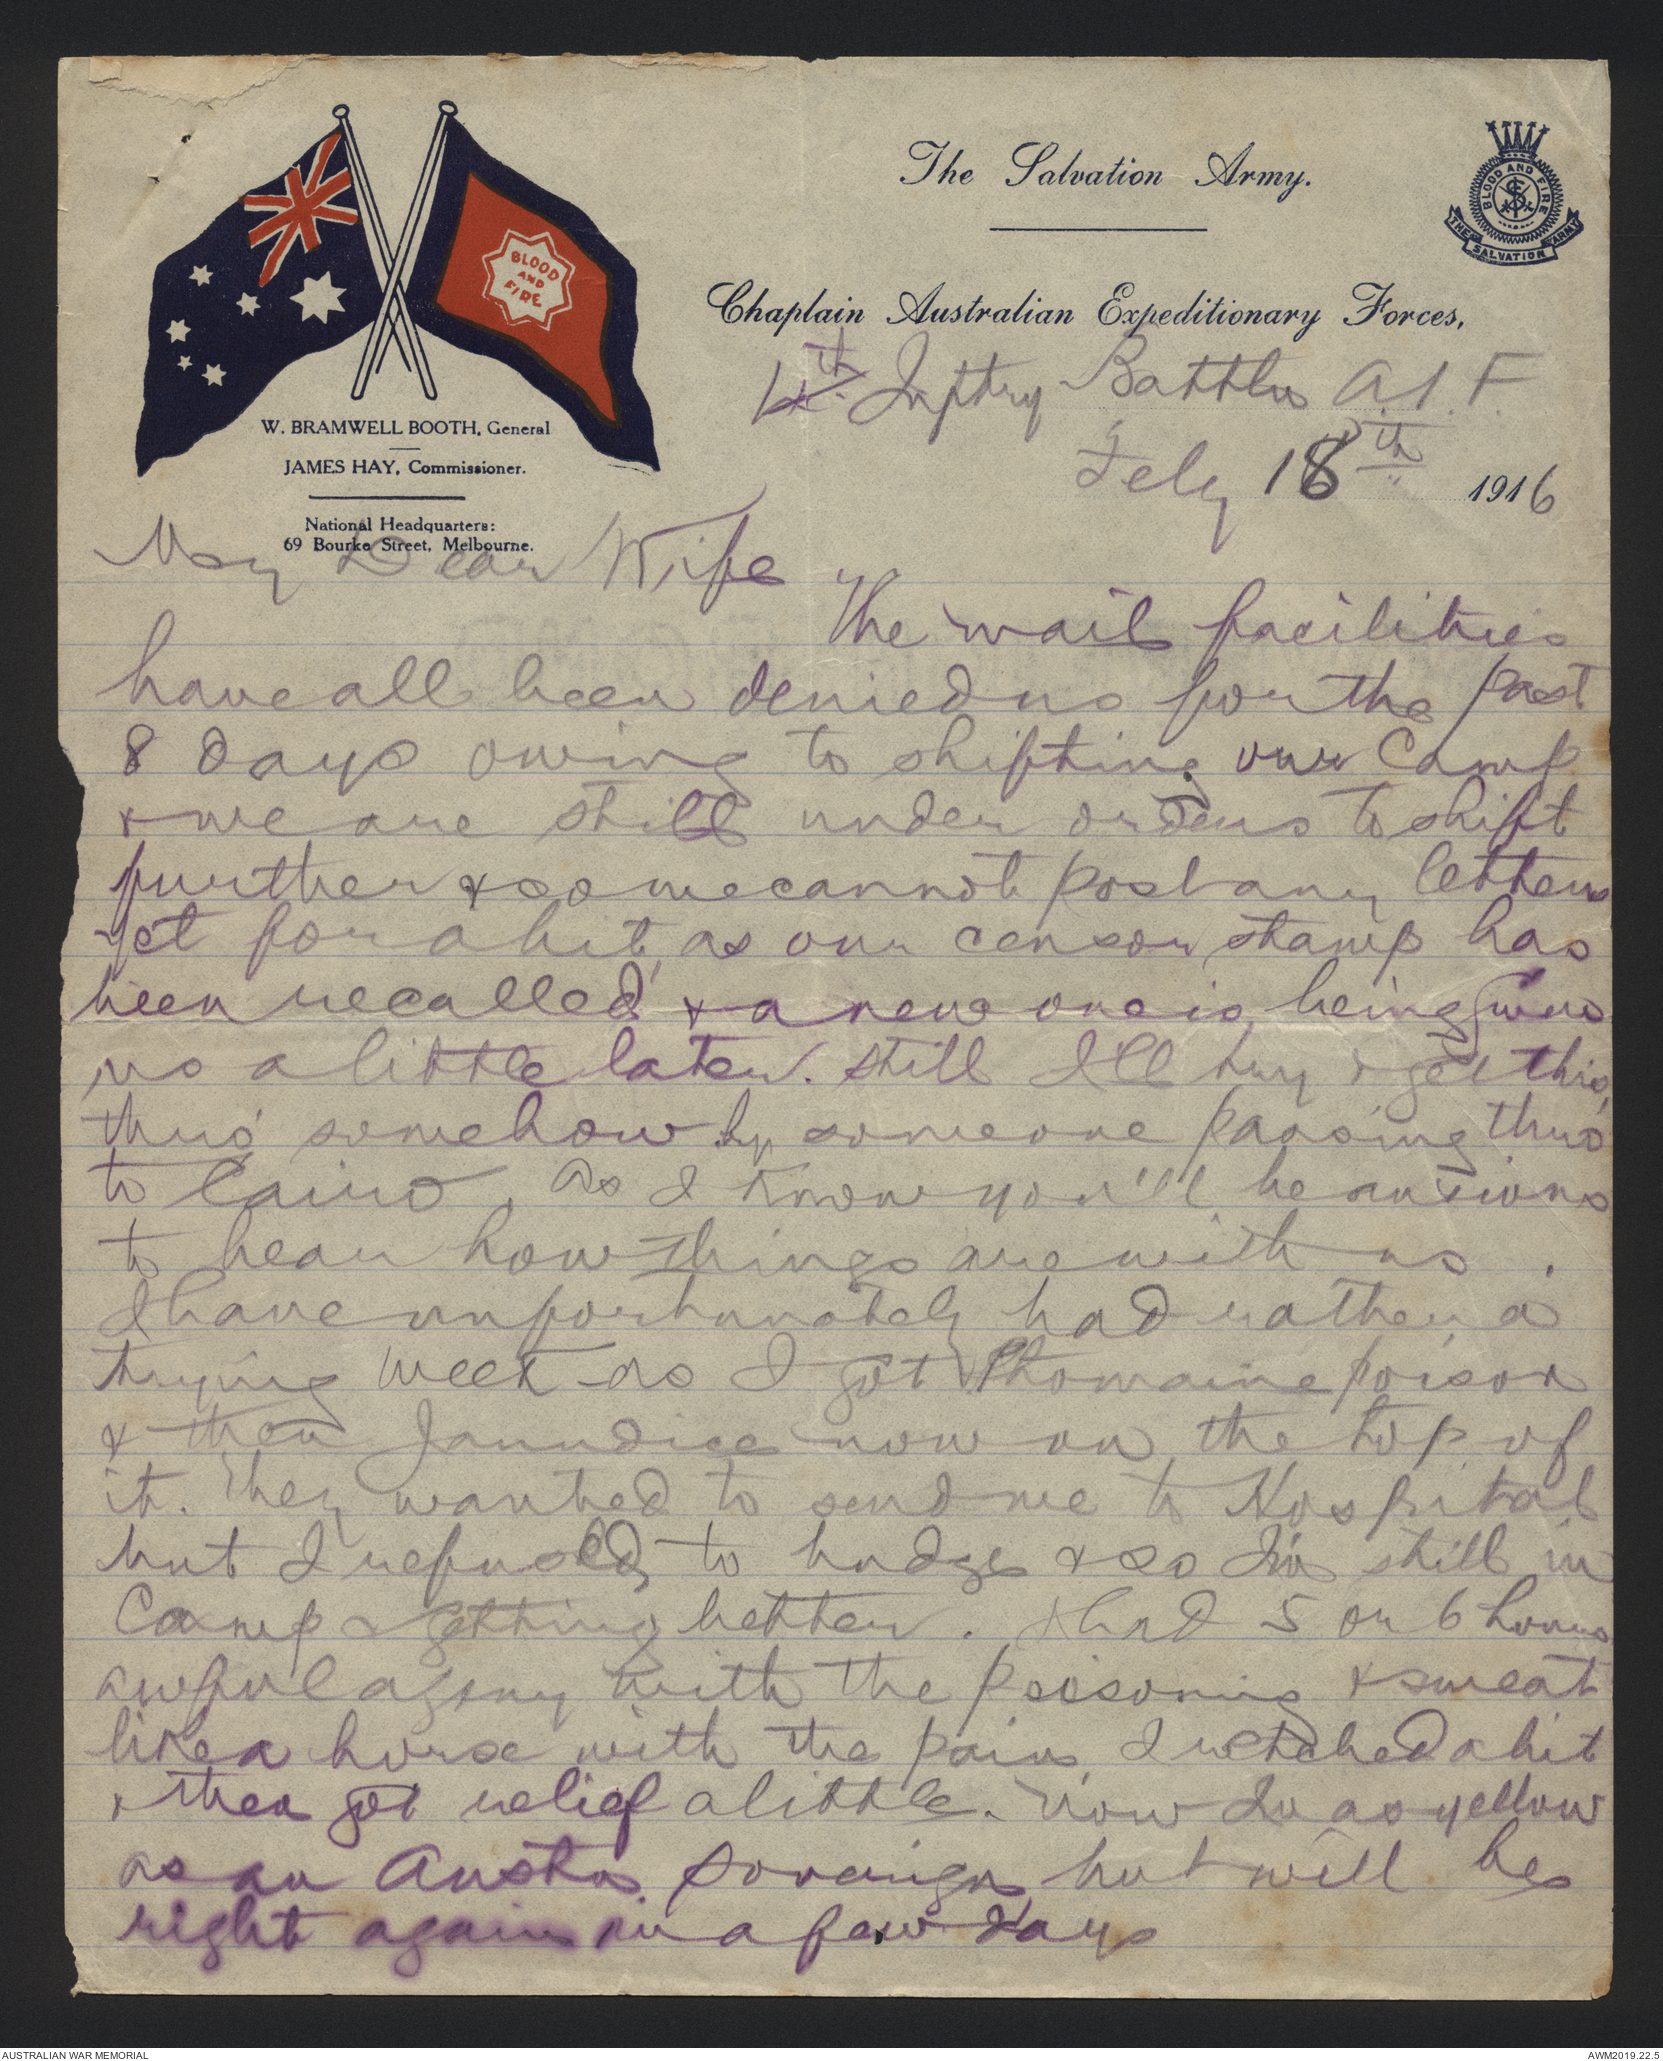 The Salvation Army.
BLOOD AND FIRE
THE SALVATION ARMY
BLOOD
AND
FIRE
Chaplain Australian Expeditionary Forces,
4th Inftry Battln A.I.F.
W. BRAMWELL BOOTH, General
JAMES HAY, Commissioner.
National Headquarters:
69 Bourke Street, Melbourne.
Feby 18th 1916
My Dear Wife
The mail facilities
have all been denied us for the past
8 days owing to shifting our Camp
& we are still under orders to shift
further & so we cannot post any letters
yet for a bit, as our censor stamp has
been recalled & a new one is being given
us a little later. Still I'll try & get this
thro' somehow by someone passing thro'
to Cairo, as I know you'll be anxious
to hear how things are with us.
I have unfortunately had rather a
trying week as I got Ptomaine poison
& then Jaundice now on the top of
it. They wanted to send me to Hospital
but I refused to budge & so I'm still in
Camp & getting better. I had 5 or 6 hours
awful agony with the poisoning & sweat
like a horse with the pain, I retched a bit
& then got relief a little. Now I'm as yellow
as an Austn. Soverign, but will be
right again in a few days
AUSTRALIAN WAR MEMORIAL
AWM2019.22.5